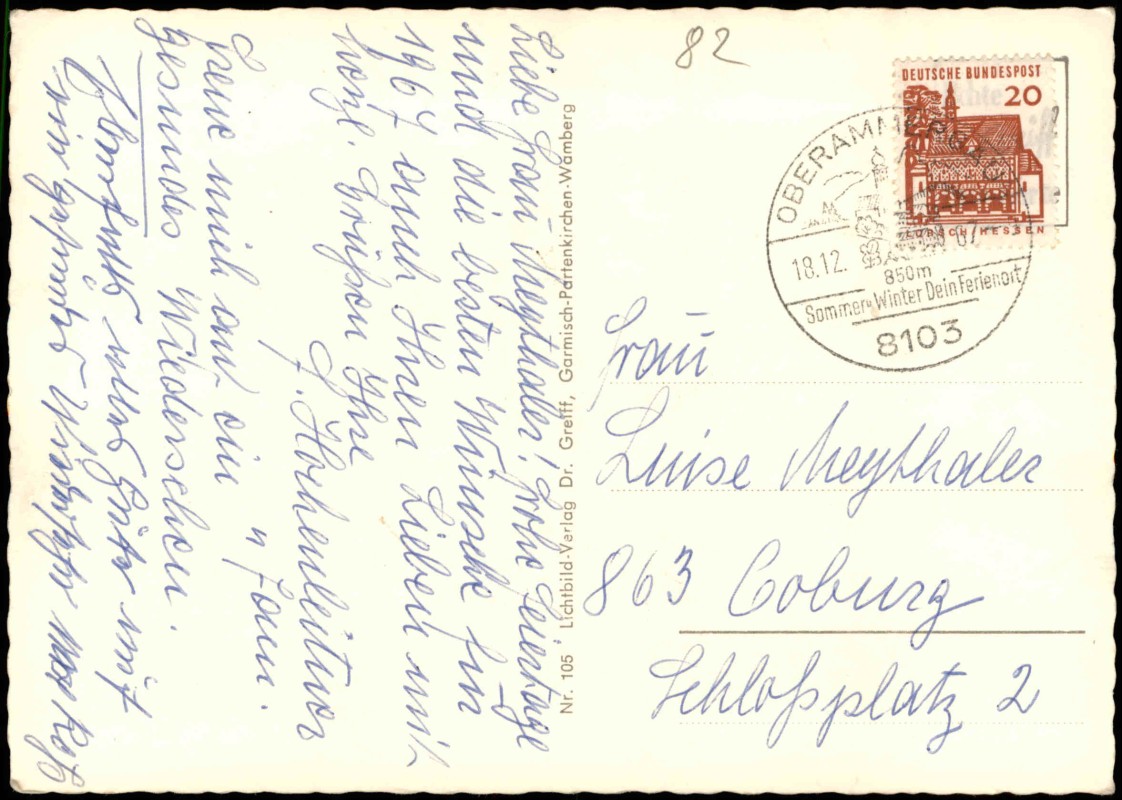 82
DEUTSCHE BUNDESPOST
20
LORSCH HESSEN
OBERAMMERGAU
18.12. 67
850m
Sommer u. Winter Dein Ferienort
8103
Frau
Luise Meythaler
863 Coburg
Schloßplatz 2
Nr. 105 Lichtbild-Verlag Dr. Greiff, Garmisch-Partenkirchen-Wamberg
Liebe Frau Meythaler! Frohe Feiertage
und die besten Wünsche für
1967 auch Ihnen Lieben mit
herzl. Grüßen Ihre
J. Hohenleitner
u. Fam.
Freue mich auf ein
gesundes Wiedersehen.
Ebenfalls alles Gute mit
ein gesundes